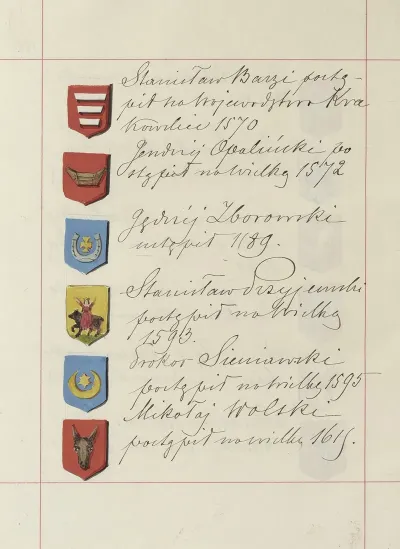 Stanisław Barzi postą-
pił na wojewodztwo Kra
kowskie 1570
Jendrzij Opaliński po
stąpił na wielką 1572
Jędrzéj Zborowski
ustąpił 1189.
Stanisław Przyjemski
postąpił na wielką
1593.
Prokop Sieniawski
postąpił na wielką 1595
Mikołaj Wolski
postąpił na wielką 1615.